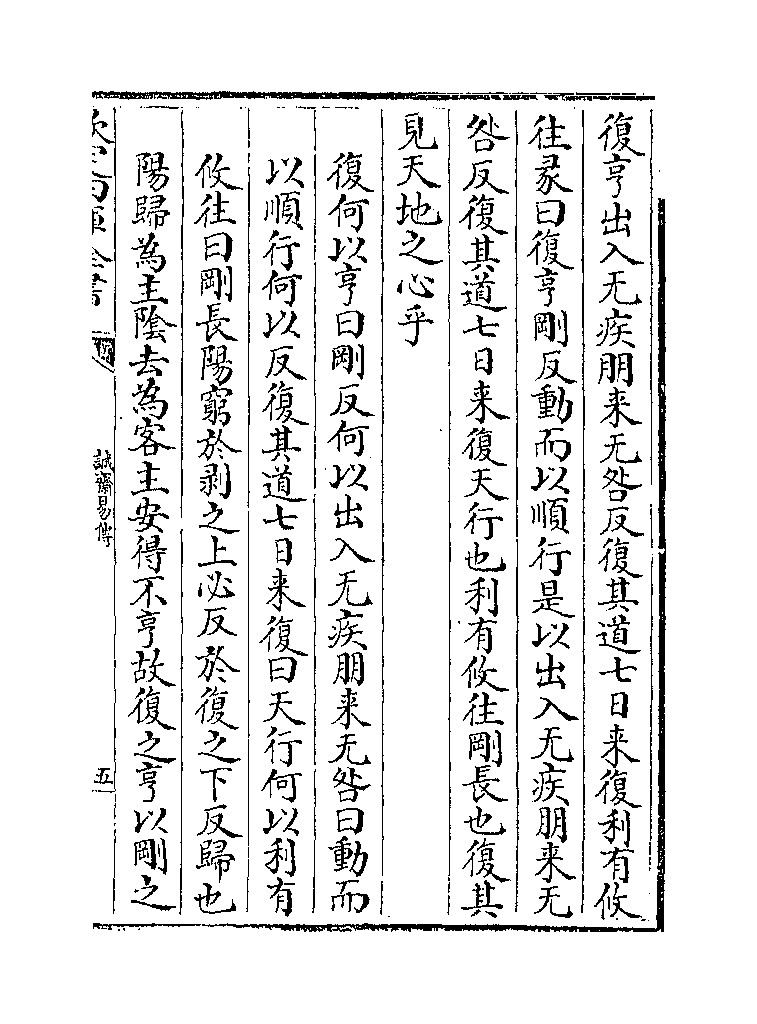 復亨出入无疾朋来无咎反復其道七日来復利有攸
往彖曰復亨剛反動而以順行是以出入无疾朋来无
咎反復其道七日来復天行也利有攸往剛長也復其
見天地之心乎
復何以亨曰剛反何以出入无疾朋来无咎曰動而
以順行何以反復其道七日来復曰天行何以利有
攸往曰剛長陽窮於剥之上必反於復之下反歸也
陽歸為主陰去為客主安得不亨故復之亨以剛之
欽定四庫全書
誠齋易傳
五